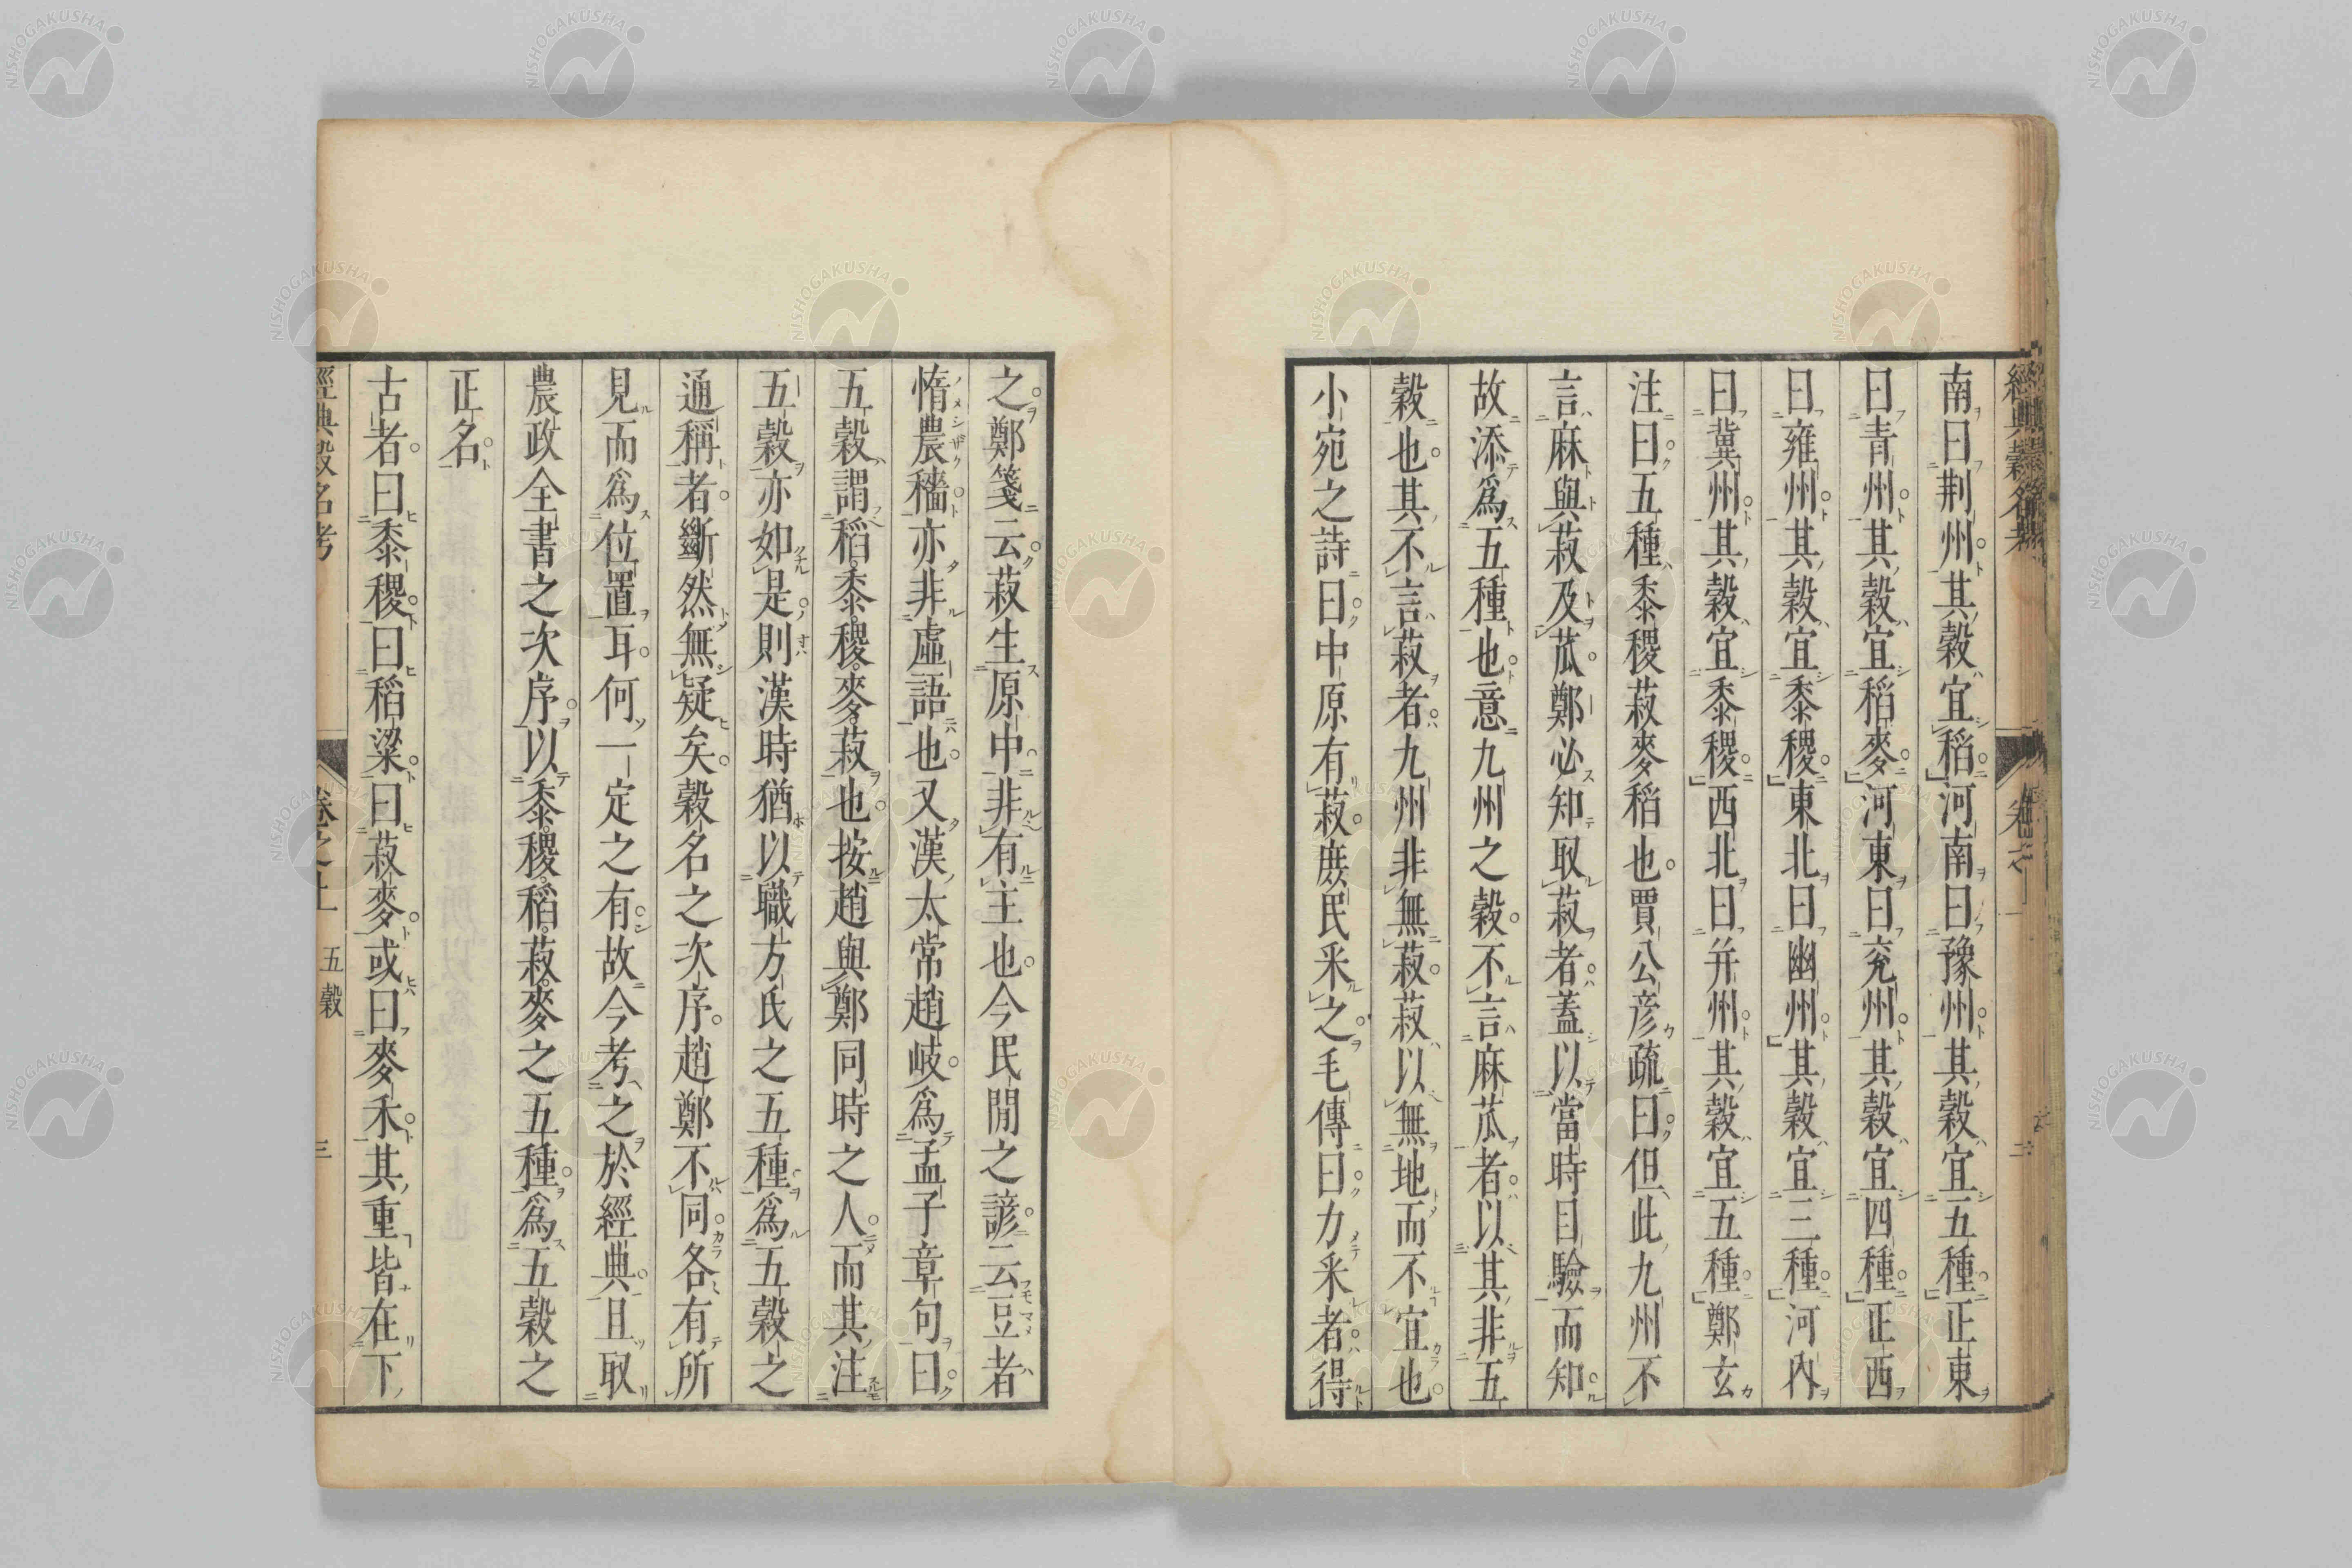 南曰荆州其穀宜稻河南曰豫州其穀宜五種正東
曰青州其穀宜稻麥河東曰兗州其穀宜四種正西
曰雍州其穀宜黍稷東北曰幽州其穀宜三種河內
曰冀州其穀宜黍稷西北曰并州其穀宜五種鄭玄
注曰五種黍稷菽麥稻也賈公彦疏曰但此九州不
言麻與菽及苽鄭必知取菽者蓋以當時目驗而知
故添爲五種也意九州之穀不言麻苽者以其非五
穀也其不言菽者九州非無菽菽以無地而不宜也
小宛之詩曰中原有菽庶民采之毛傳曰力采者得
之鄭箋云菽生原中非有主也今民間之諺云豆者
惰農穡亦非虛語也又漢太常趙岐爲孟子章句曰
五穀謂稻黍稷麥菽也按趙與鄭同時之人而其注
五穀亦如是則漢時猶以職方氏之五種爲五穀之
通稱者斷然無疑矣穀名之次序趙鄭不同各有所
見而爲位置耳何一定之有故今考之於經典且取
農政全書之次序以黍稷稻菽麥之五種爲五穀之
正名
古者曰黍稷曰稻粱曰菽麥或曰麥禾其重皆在下
經典穀名考 卷之上 五穀 三
NISHOGAKUSHA